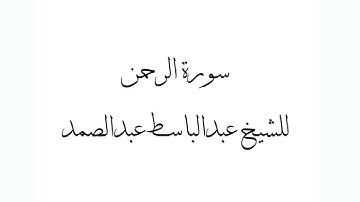 سورة الرحمن
للشيخ عبدالباسط عبدالصمد